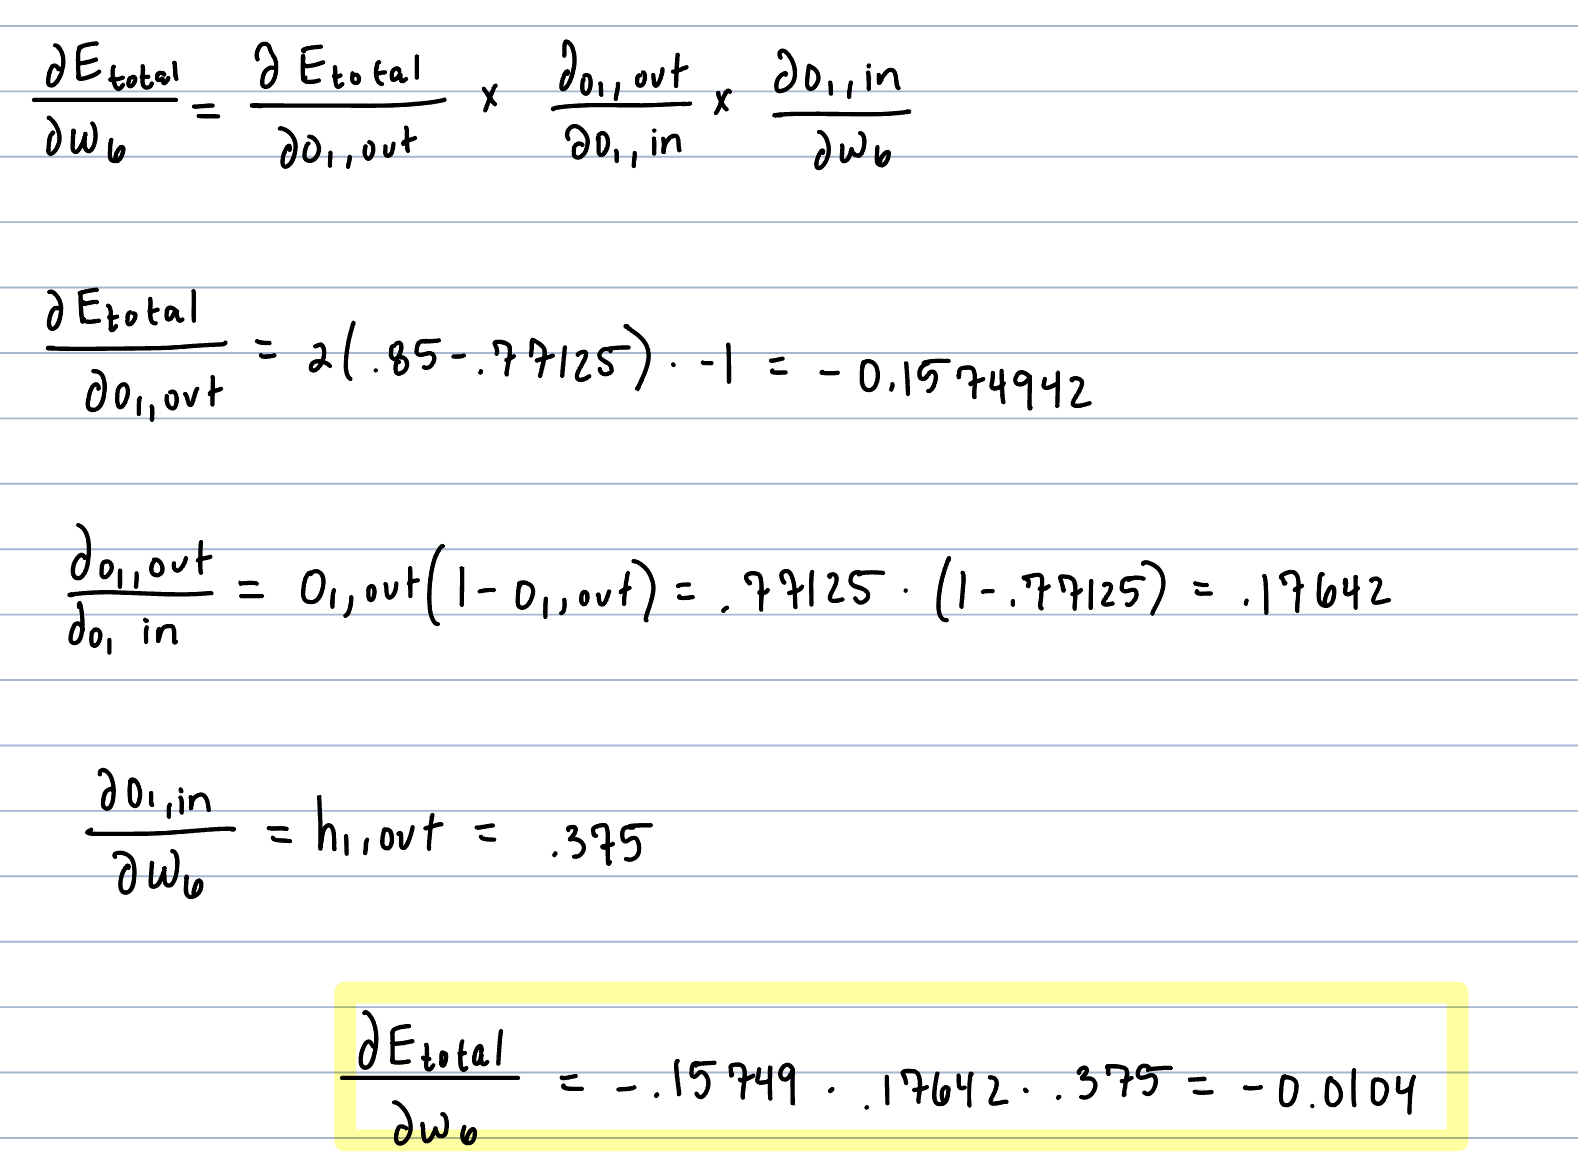 ∂E_total/∂w₆ = ∂E_total/∂o₁,out × ∂o₁,out/∂o₁,in × ∂o₁,in/∂w₆
∂E_total/∂o₁,out = 2(.85-.77125) · -1 = -0.1574942
∂o₁,out/∂o₁ in = o₁,out(1-o₁,out) = .77125 · (1-.77125) = .17642
∂o₁,in/∂w₆ = h₁,out = .375
∂E_total/∂w₆ = -.15749 · .17642 · .375 = -0.0104